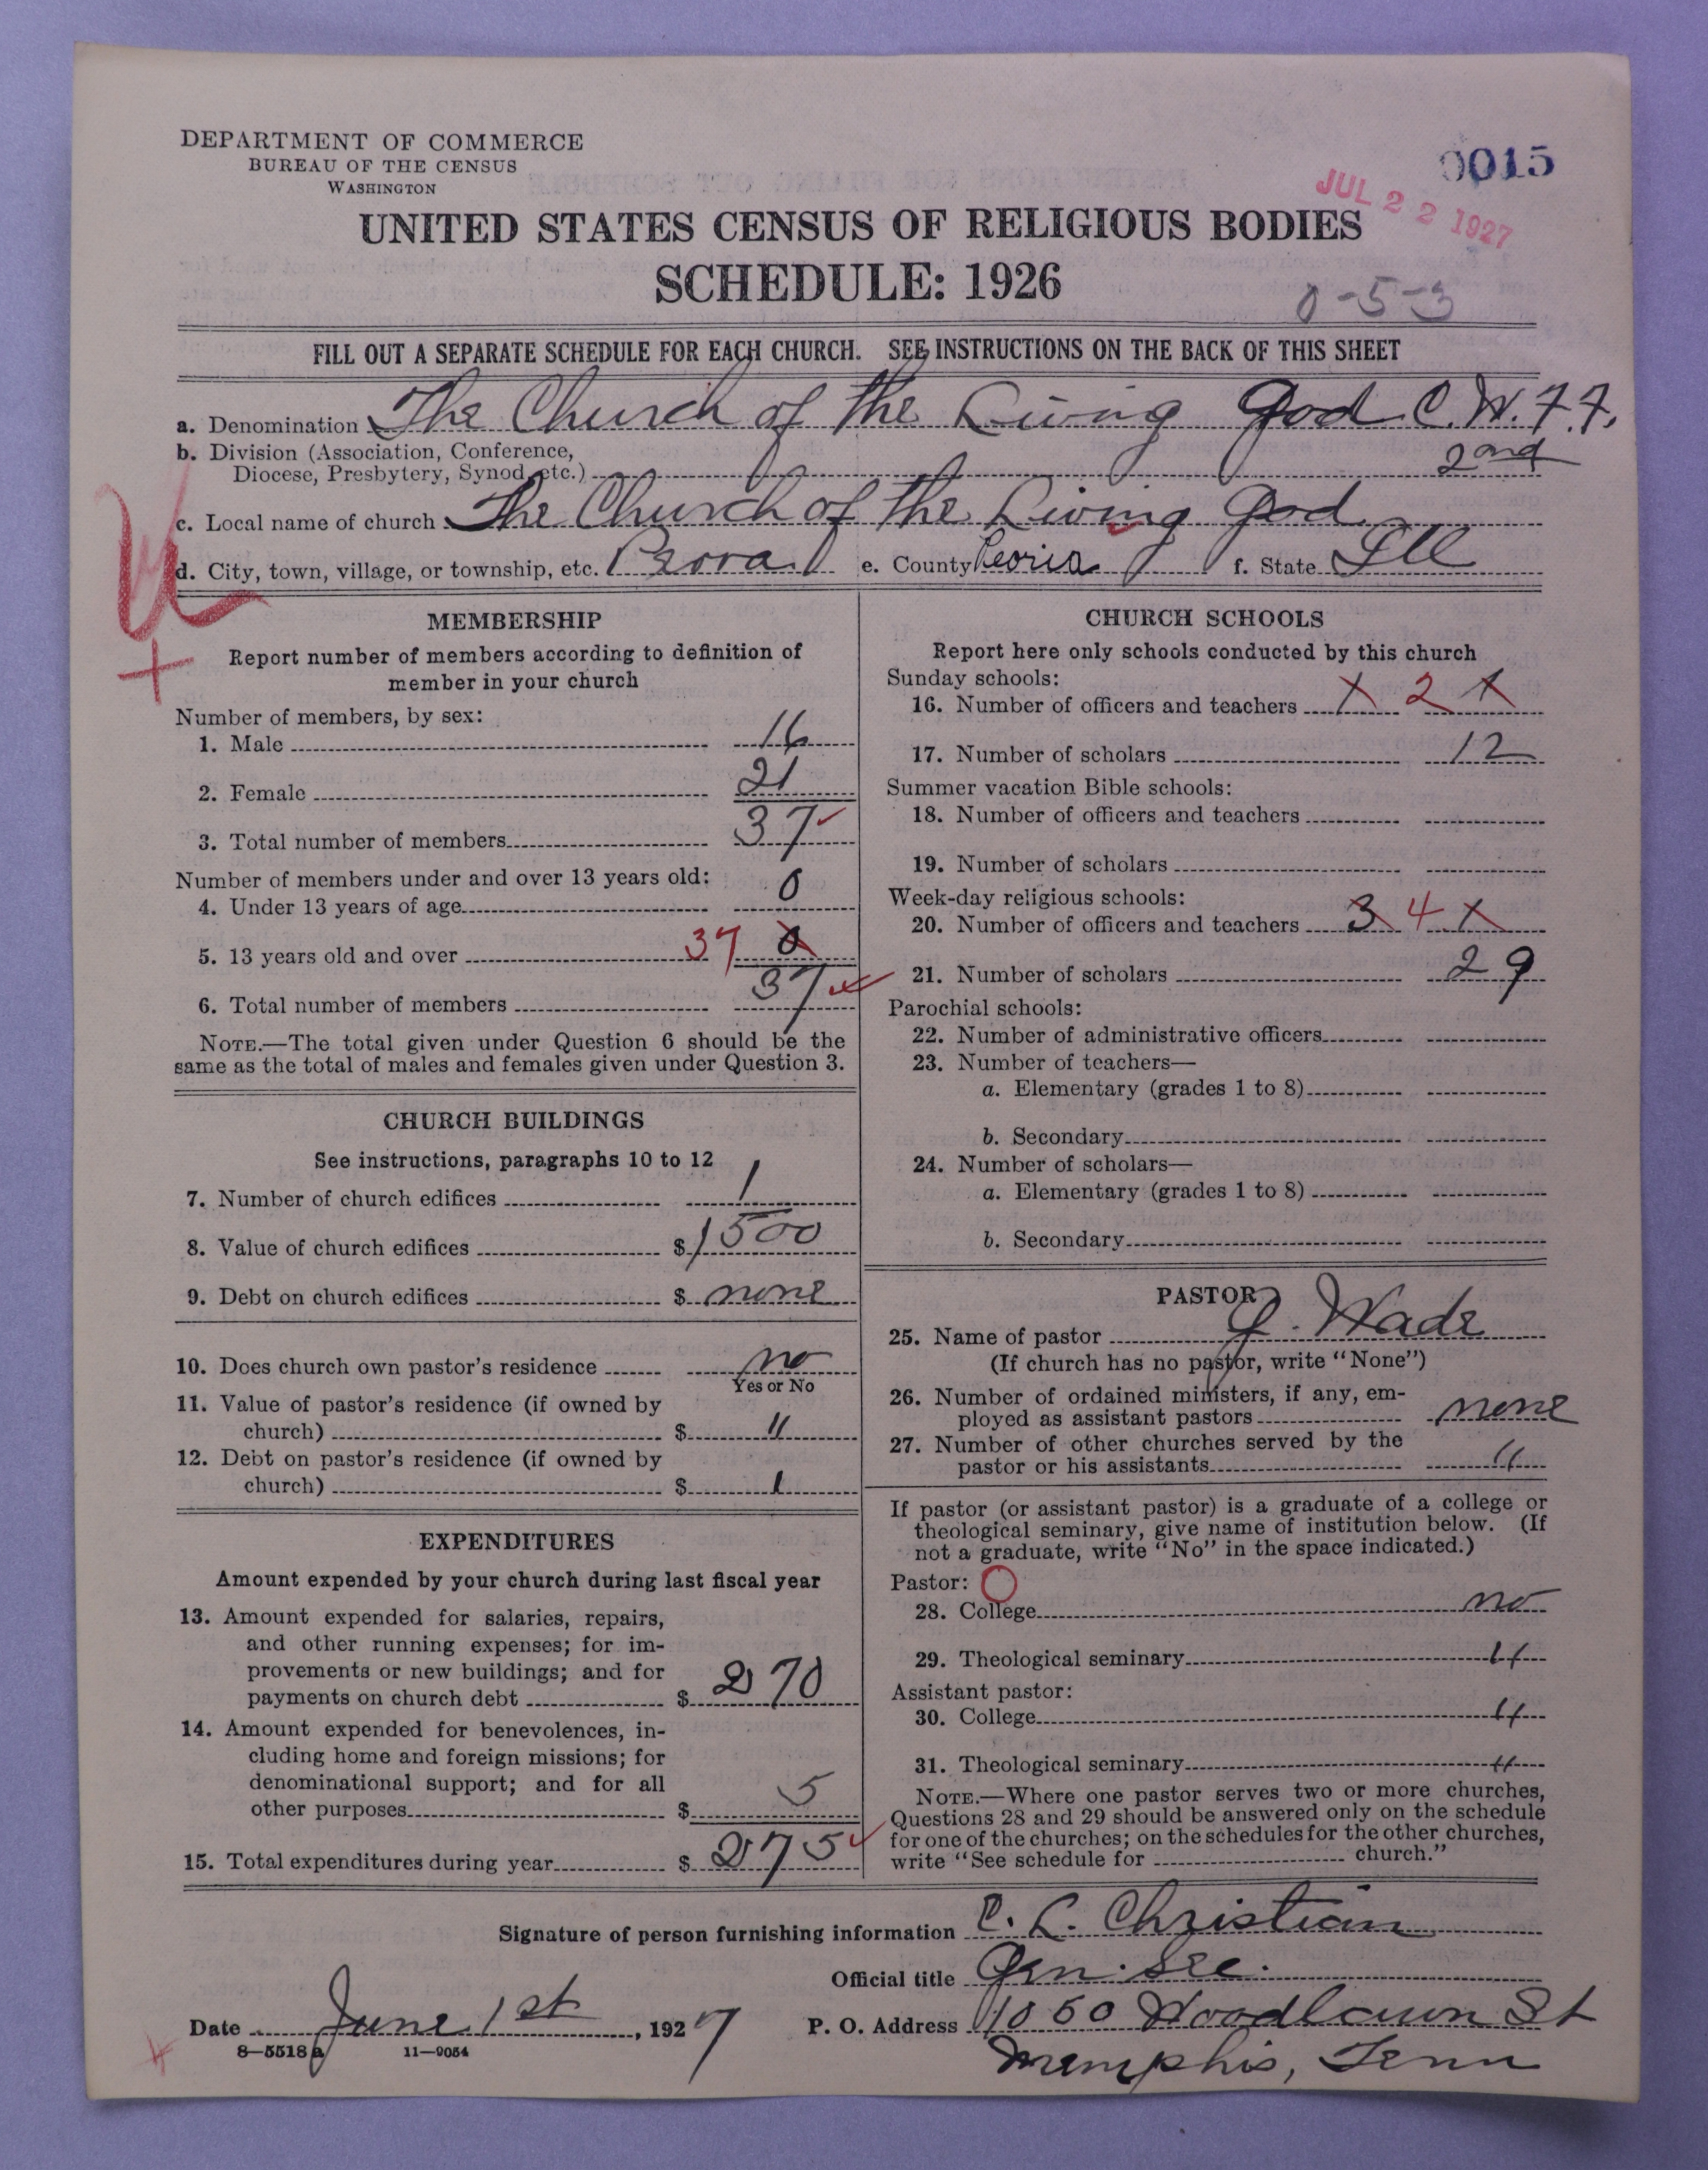 DEPARTMENT OF COMMERCE
BUREAU OF THE CENSUS
WASHINGTON
0015
JUL 22 1927
UNITED STATES CENSUS OF RELIGIOUS BODIES
SCHEDULE: 1926
0-5-3
FILL OUT A SEPARATE SCHEDULE FOR EACH CHURCH. SEE INSTRUCTIONS ON THE BACK OF THIS SHEET
a. Denomination The Church of the Living God C.W.F.F.
b. Division (Association, Conference,
Diocese, Presbytery, Synod, etc.) 2nd
c. Local name of church The Church of the Living God
d. City, town, village, or township, etc. Peora e. County Peoria f. State Ill
MEMBERSHIP
Report number of members according to definition of
member in your church
Number of members, by sex:
1. Male 16
2. Female 21
3. Total number of members 37
Number of members under and over 13 years old:
4. Under 13 years of age 0
5. 13 years old and over 37 0
6. Total number of members 37
NOTE.—The total given under Question 6 should be the
same as the total of males and females given under Question 3.
CHURCH BUILDINGS
See instructions, paragraphs 10 to 12
7. Number of church edifices 1
8. Value of church edifices $ 1500
9. Debt on church edifices $ none
10. Does church own pastor's residence no
Yes or No
11. Value of pastor's residence (if owned by
church) $ "
12. Debt on pastor's residence (if owned by
church) $
EXPENDITURES
Amount expended by your church during last fiscal year
13. Amount expended for salaries, repairs,
and other running expenses; for im-
provements or new buildings; and for
payments on church debt $ 270
14. Amount expended for benevolences, in-
cluding home and foreign missions; for
denominational support; and for all
other purposes $ 5
15. Total expenditures during year $ 275
CHURCH SCHOOLS
Report here only schools conducted by this church
Sunday schools:
16. Number of officers and teachers 1 2 1
17. Number of scholars 12
Summer vacation Bible schools:
18. Number of officers and teachers
19. Number of scholars
Week-day religious schools:
20. Number of officers and teachers 3 4 1
21. Number of scholars 29
Parochial schools:
22. Number of administrative officers
23. Number of teachers—
a. Elementary (grades 1 to 8)
b. Secondary
24. Number of scholars—
a. Elementary (grades 1 to 8)
b. Secondary
PASTOR
25. Name of pastor J. Wade
(If church has no pastor, write "None")
26. Number of ordained ministers, if any, em-
ployed as assistant pastors none
27. Number of other churches served by the
pastor or his assistants "
If pastor (or assistant pastor) is a graduate of a college or
theological seminary, give name of institution below. (If
not a graduate, write "No" in the space indicated.)
Pastor:
28. College no
29. Theological seminary "
Assistant pastor:
30. College "
31. Theological seminary "
NOTE.—Where one pastor serves two or more churches,
Questions 28 and 29 should be answered only on the schedule
for one of the churches; on the schedules for the other churches,
write "See schedule for church."
Signature of person furnishing information C. L. Christian
Official title Gen. Sec.
Date June 1st, 1927 P. O. Address 1050 Woodlawn St
8—5518 a 11—9054 Memphis, Tenn